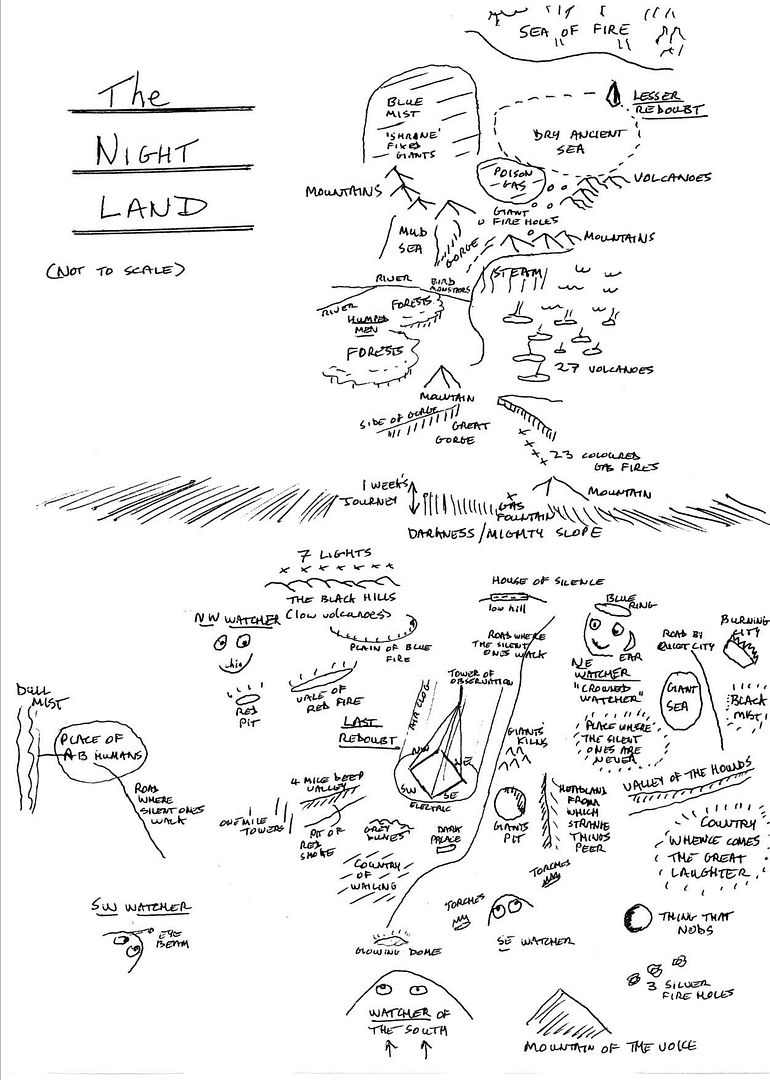 The
NIGHT
LAND
(NOT TO SCALE)
SEA OF FIRE
BLUE
MIST
'SHRINE'
FIXED
GIANTS
LESSER
REDOUBT
DRY ANCIENT
SEA
POISON
GAS
VOLCANOES
MOUNTAINS
GIANT
FIRE HOLES
MUD
SEA
GORGE
MOUNTAINS
STEAM
RIVER
BIRD
MONSTERS
RIVER
FORESTS
HUMPED
MEN
FORESTS
27 VOLCANOES
MOUNTAIN
SIDE OF GORGE
GREAT
GORGE
23 COLOURED
GAS FIRES
1 WEEK'S
JOURNEY
MOUNTAIN
GAS
FOUNTAIN
DARKNESS/MIGHTY SLOPE
7 LIGHTS
THE BLACK HILLS
(low volcanoes)
HOUSE OF SILENCE
low hill
NW WATCHER
chin
PLAIN OF BLUE
FIRE
ROAD WHERE
THE SILENT
ONES WALK
BLUE
RING
EAR
NE
WATCHER
"CROWNED
WATCHER"
ROAD BY
QUIET CITY
BURNING
CITY
RED
PIT
VALE OF
RED FIRE
TOWER OF
OBSERVATION
AIR CLOG
LAST
REDOUBT
NW
NE
SW
SE
ELECTRIC
GIANTS'
KILNS
PLACE WHERE
THE SILENT
ONES ARE
NEVER
GIANT
SEA
BLACK
MIST
DULL
MIST
PLACE OF
AB HUMANS
ROAD
WHERE
SILENT ONES
WALK
4 MILE DEEP
VALLEY
ONE MILE
TOWERS
PIT OF
RED
SMOKE
GREY
DUNES
DARK
PALACE
GIANTS
PIT
HEADLAND
FROM
WHICH
STRANGE
THINGS
PEER
VALLEY OF THE HOUNDS
COUNTRY
WHENCE COMES
THE GREAT
LAUGHTER
COUNTRY
OF
WAILING
TORCHES
TORCHES
SW WATCHER
EYE
BEAM
SE WATCHER
THING THAT
NODS
GLOWING DOME
3 SILVER
FIRE HOLES
WATCHER OF
THE SOUTH
MOUNTAIN OF THE VOICE